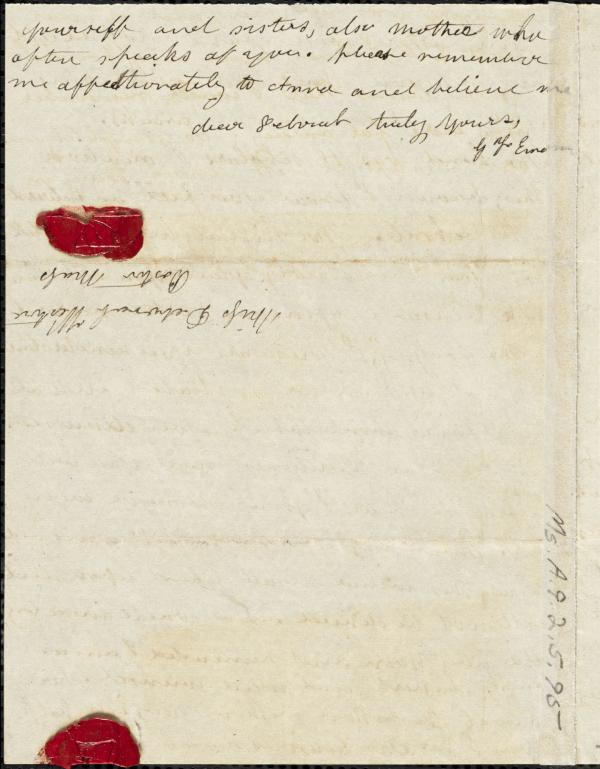 yourself and sisters, also mother who
often speaks of you. please remember
me affectionately to Anna and believe me
dear Deborah truly yours,
Miss Deborah Weston
Boston Mass
Ms. A.9.2.5.95